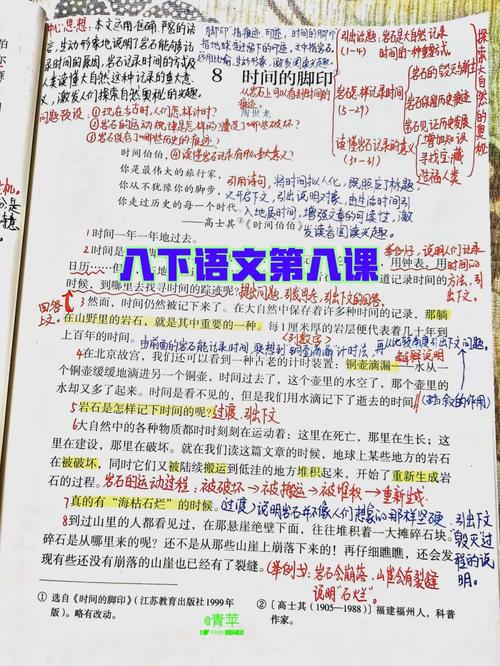 中心思想：本文运用准确、严密的语
言，生动形象地说明了岩石能够记
录时间的原因，岩石记录时间的方式及
人类读懂大自然这种记录的重大意
义，激发人们探索自然奥秘的兴趣。
脚印指痕迹、印迹，时间的脚印
8 时间的脚印
陶世龙
引出话题：岩石是大自然记录
(1-4) 时间的一种重要形式。
岩石记录时间
(5-29)
岩石的毁灭与新生
岩石保留历史痕迹
岩石见证历史发展
读懂岩石记录的意义
(30-31)
增加知识
寻找宝藏
造福人类
探索大自然的奥秘
问题预设：①现在与古时，人们怎样计时？
②岩石的运动规律是怎样的？遭受了哪些破坏？
③岩石保存了哪些历史的痕迹？
④读懂岩石记录有什么重大意义？
时间伯伯，
你是最伟大的旅行家，
你从不犹豫你的脚步，
你走过历史的每一个时代。
——高士其《时间伯伯》
引用诗句，将时间拟人化，既照应了标题，
又开启下文，引出说明对象，
增强文章的可读性，激
发读者阅读兴趣。
八下语文第八课
1时间一年一年地过去。
2时间是
用钟表，用
日历
道记录时间的
时候，到哪里去找寻时间的踪迹呢？提出问题，引发思考，引出下文的回答。
举例子，说明人们记录
时间的
方法，引
出下文。
回答
上文。
3然而，时间仍然被记下来了。在大自然中保存着许多种时间的记录，那躺
在山野里的岩石，就是其中重要的一种。每1厘米厚的岩层便代表着几十年到
上百年的时间。
（列数字）
4在北京故宫，我们还可以看到一种古老的计时装置：铜壶滴漏——水从一
个铜壶缓缓地滴进另一个铜壶，时间过去了，这个铜壶里的水空了，那个壶里的
水却又多了起来。时间是看不见的，但是我们用水滴记下了逝去的时间
解释说明
（括号的作用）
5岩石是怎样记下时间的呢？过渡，引出下文
6大自然中的各种物质都时时刻刻在运动着：这里在死亡，那里在生长；这
里在建设，那里在破坏。就在我们读这篇文章的时候，地球上某些地方的岩石
在被破坏，同时它们又被陆续搬运到低洼的地方堆积起来，开始了重新生成岩
石的过程。岩石的运动过程：被破坏→被搬运→被堆积→重新生成
7真的有“海枯石烂”的时候。过渡，说明岩石并不像人们想象的那样坚硬，引出下文
毁灭过
程的说
明。
8到过山里的人都看见过，在那悬崖绝壁下面，往往堆积着一大摊碎石块。
碎石是从哪里来的呢？还不是从那些山崖上崩落下来的！再仔细瞧瞧，还会发
现有些还没有崩落的山崖也已经有了裂缝。（举例子：岩石会崩落、山崖会有裂缝
说明“石烂”。
① 选自《时间的脚印》（江苏教育出版社1999年
版）。略有改动。
② ［高士其（1905—1988）］福建福州人，科普
作家。
@青苹